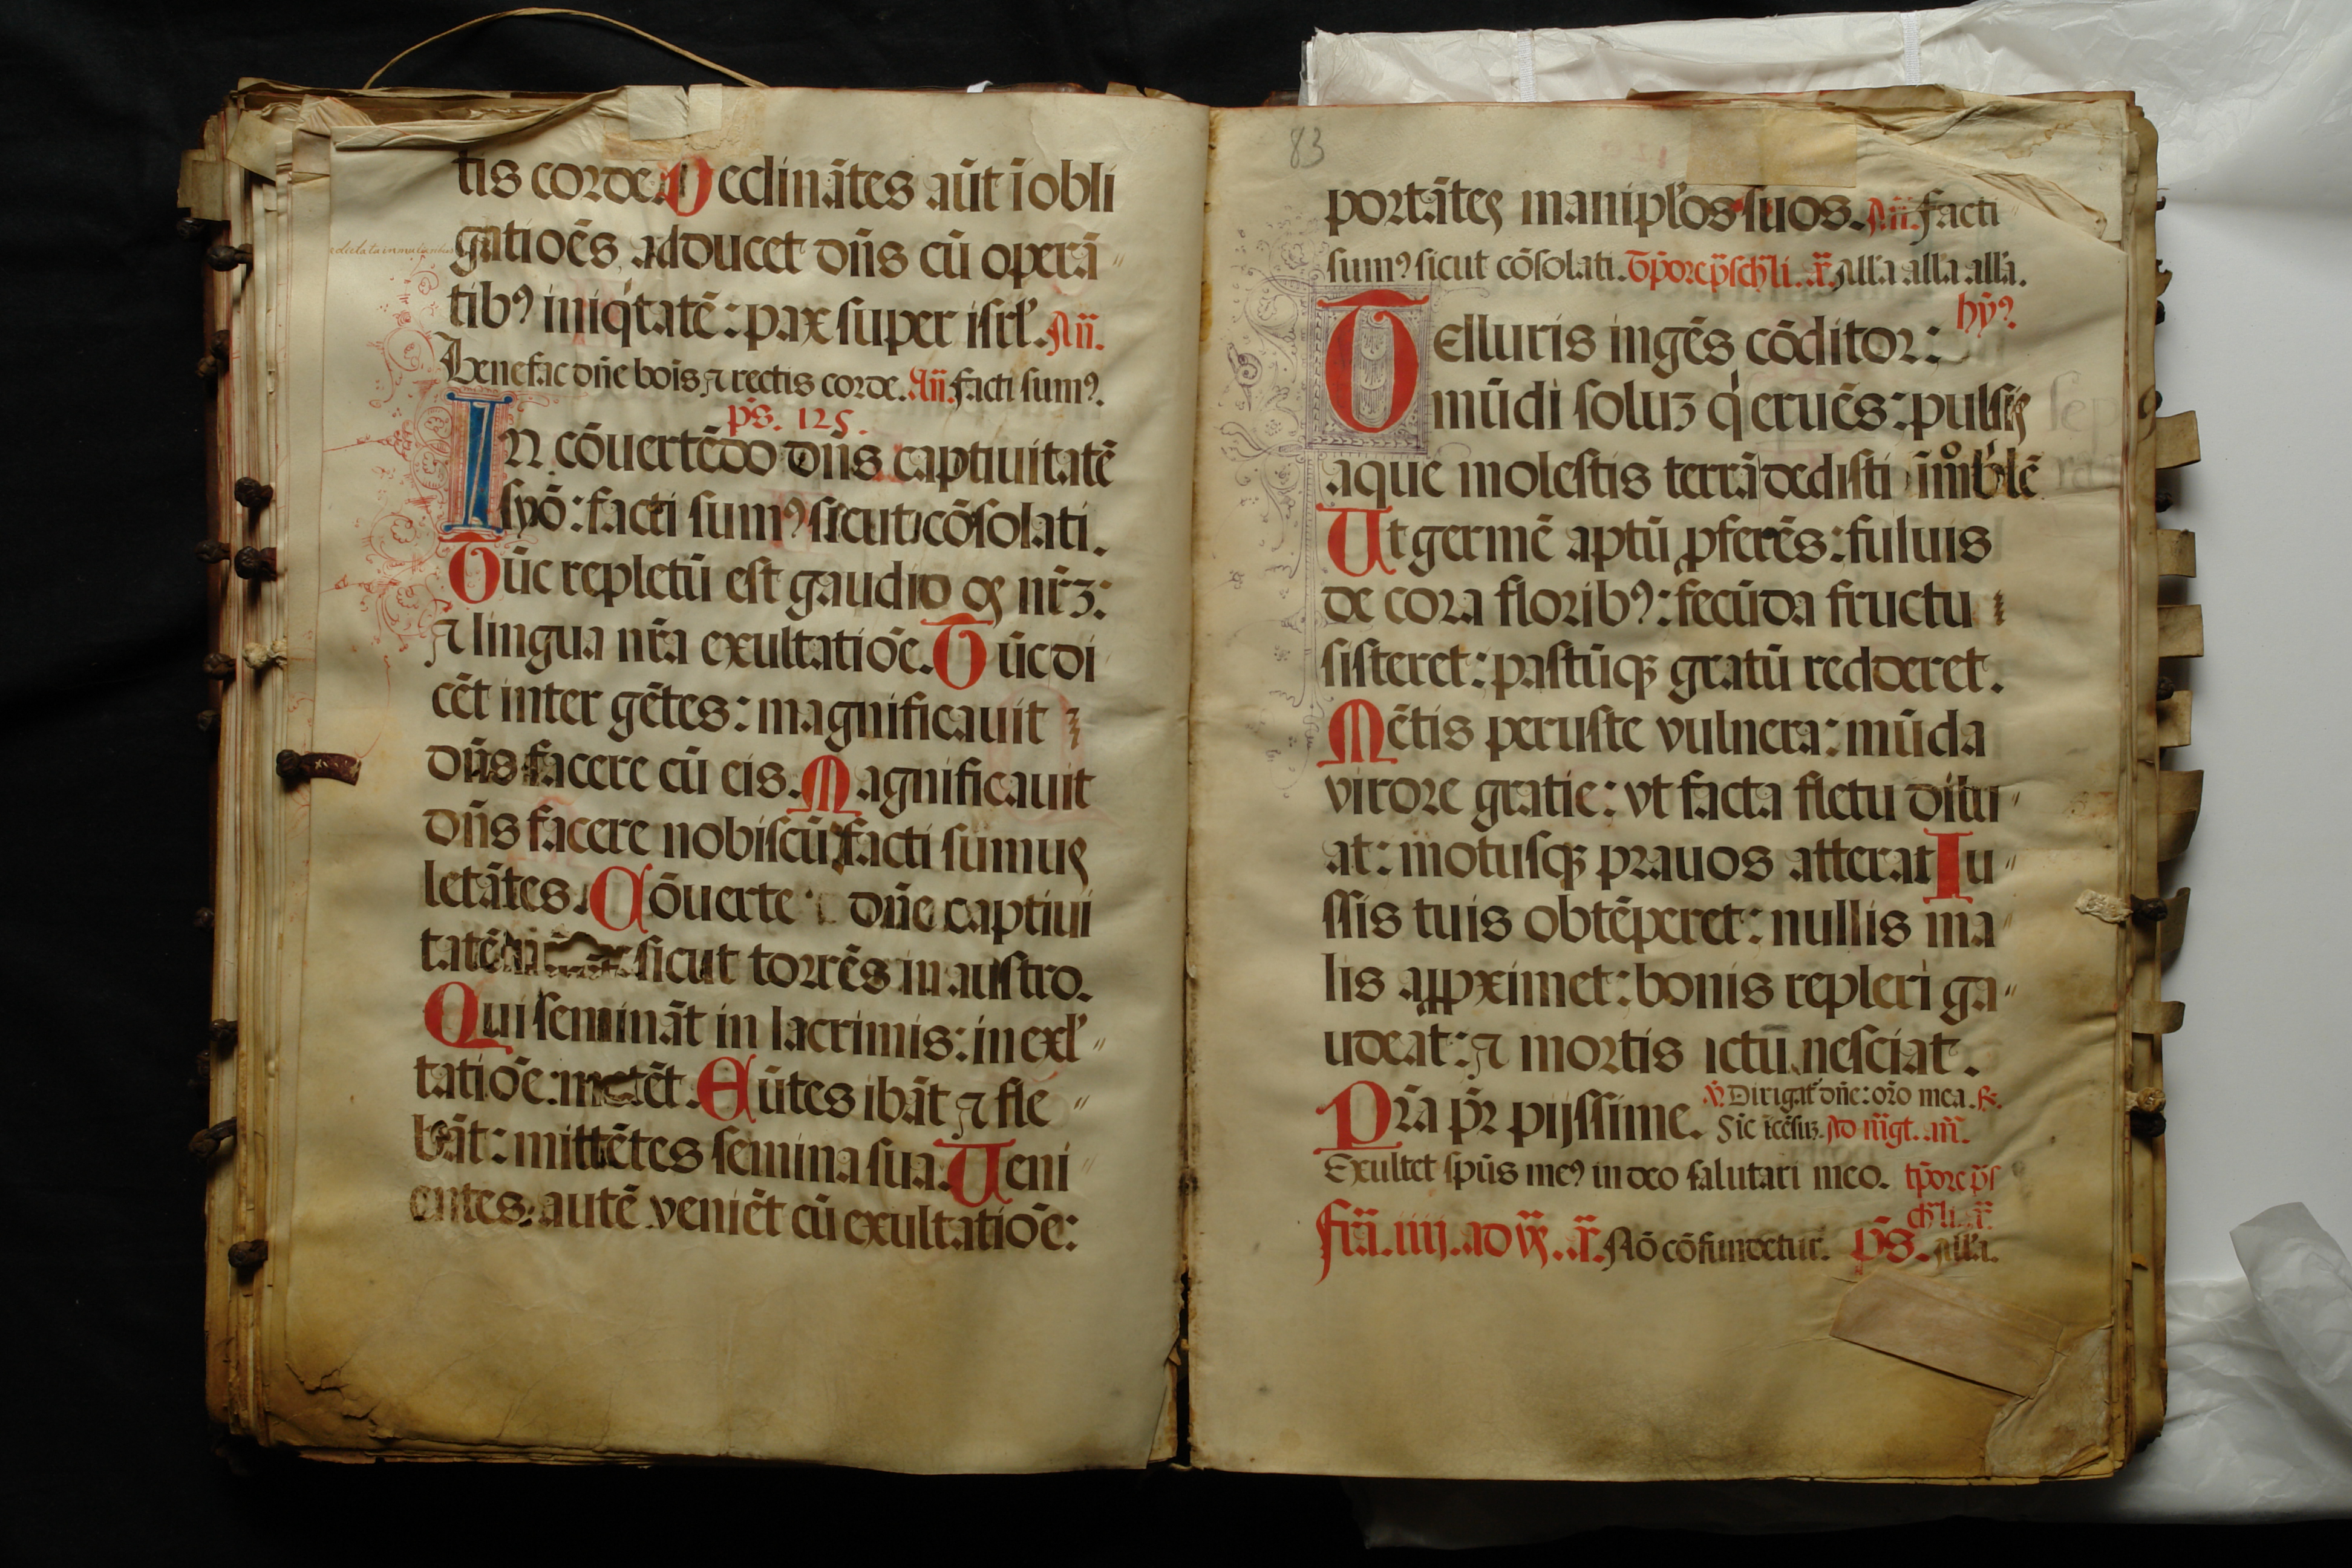 tis corde. Declinātes aūt ī obli
gatiōēs adducet dn̄s cū operā
tibꝯ iniqͥtatē: pax super isrl̄. Añ.
Benefac dn̄e bois ⁊ rectis corde. Añ. facti sumꝯ.
ps̄. 125.
In cōuertēdo dn̄s captiuitatē
syō: facti sumꝯ sicut cōsolati.
Tūc repletū est gaudio os nr̄ꝫ:
⁊ lingua nr̄a exultatiōe. Tūc di
cēt inter gētes: magnificauit
dn̄s facere cū eis. Magnificauit
dn̄s facere nobiscū: facti sumus
letātes. Cōuerte dn̄e captiui
tatē sicut torrēs in austro.
Qui semināt in lacrimis: in exl̄
tatiōe metēt. Eūtes ibāt ⁊ fle
bāt: mittētes semina sua. Ueni
entes autē veniēt cū exultatiōe:
83
portātes manipl̄os suos. Añ. facti
sumꝯ sicut cōsolati. Tp̄ore p̄sch̄li. ā. All̄a all̄a all̄a.
hȳꝯ
Telluris ingēs cōditor:
mūdi soluꝫ qͥ eruēs: pulsis
aque molestis terrā dedisti īmobͥlē
Ut germē aptū ꝓferēs: fuluis
de cora floribꝯ: fecūda fructu
sisteret: pastūqꝫ gratū redderet.
Mētis peruste vulnera: mūda
virore gratie: vt facta fletu dilu
at: motusqꝫ prauos atterat Iu
ssis tuis obtēperet: nullis ma
lis aꝓꝓximet: bonis repleri ga
udeat: ⁊ mortis ictū nesciat.
Pr̄a pr̄ pijssime. ℣. Dirigat̄ dn̄e: or̄o mea. ℞.
Sic īcēsuꝫ. Ad m̄gt. añ.
Exultet sp̄us meꝯ in deo salutari meo. tp̄ore p̄s
ch̄li. ā.
fr̄ia. iiij. ad vs̄. ā. Nō cōfundetur. ps̄. All̄a.